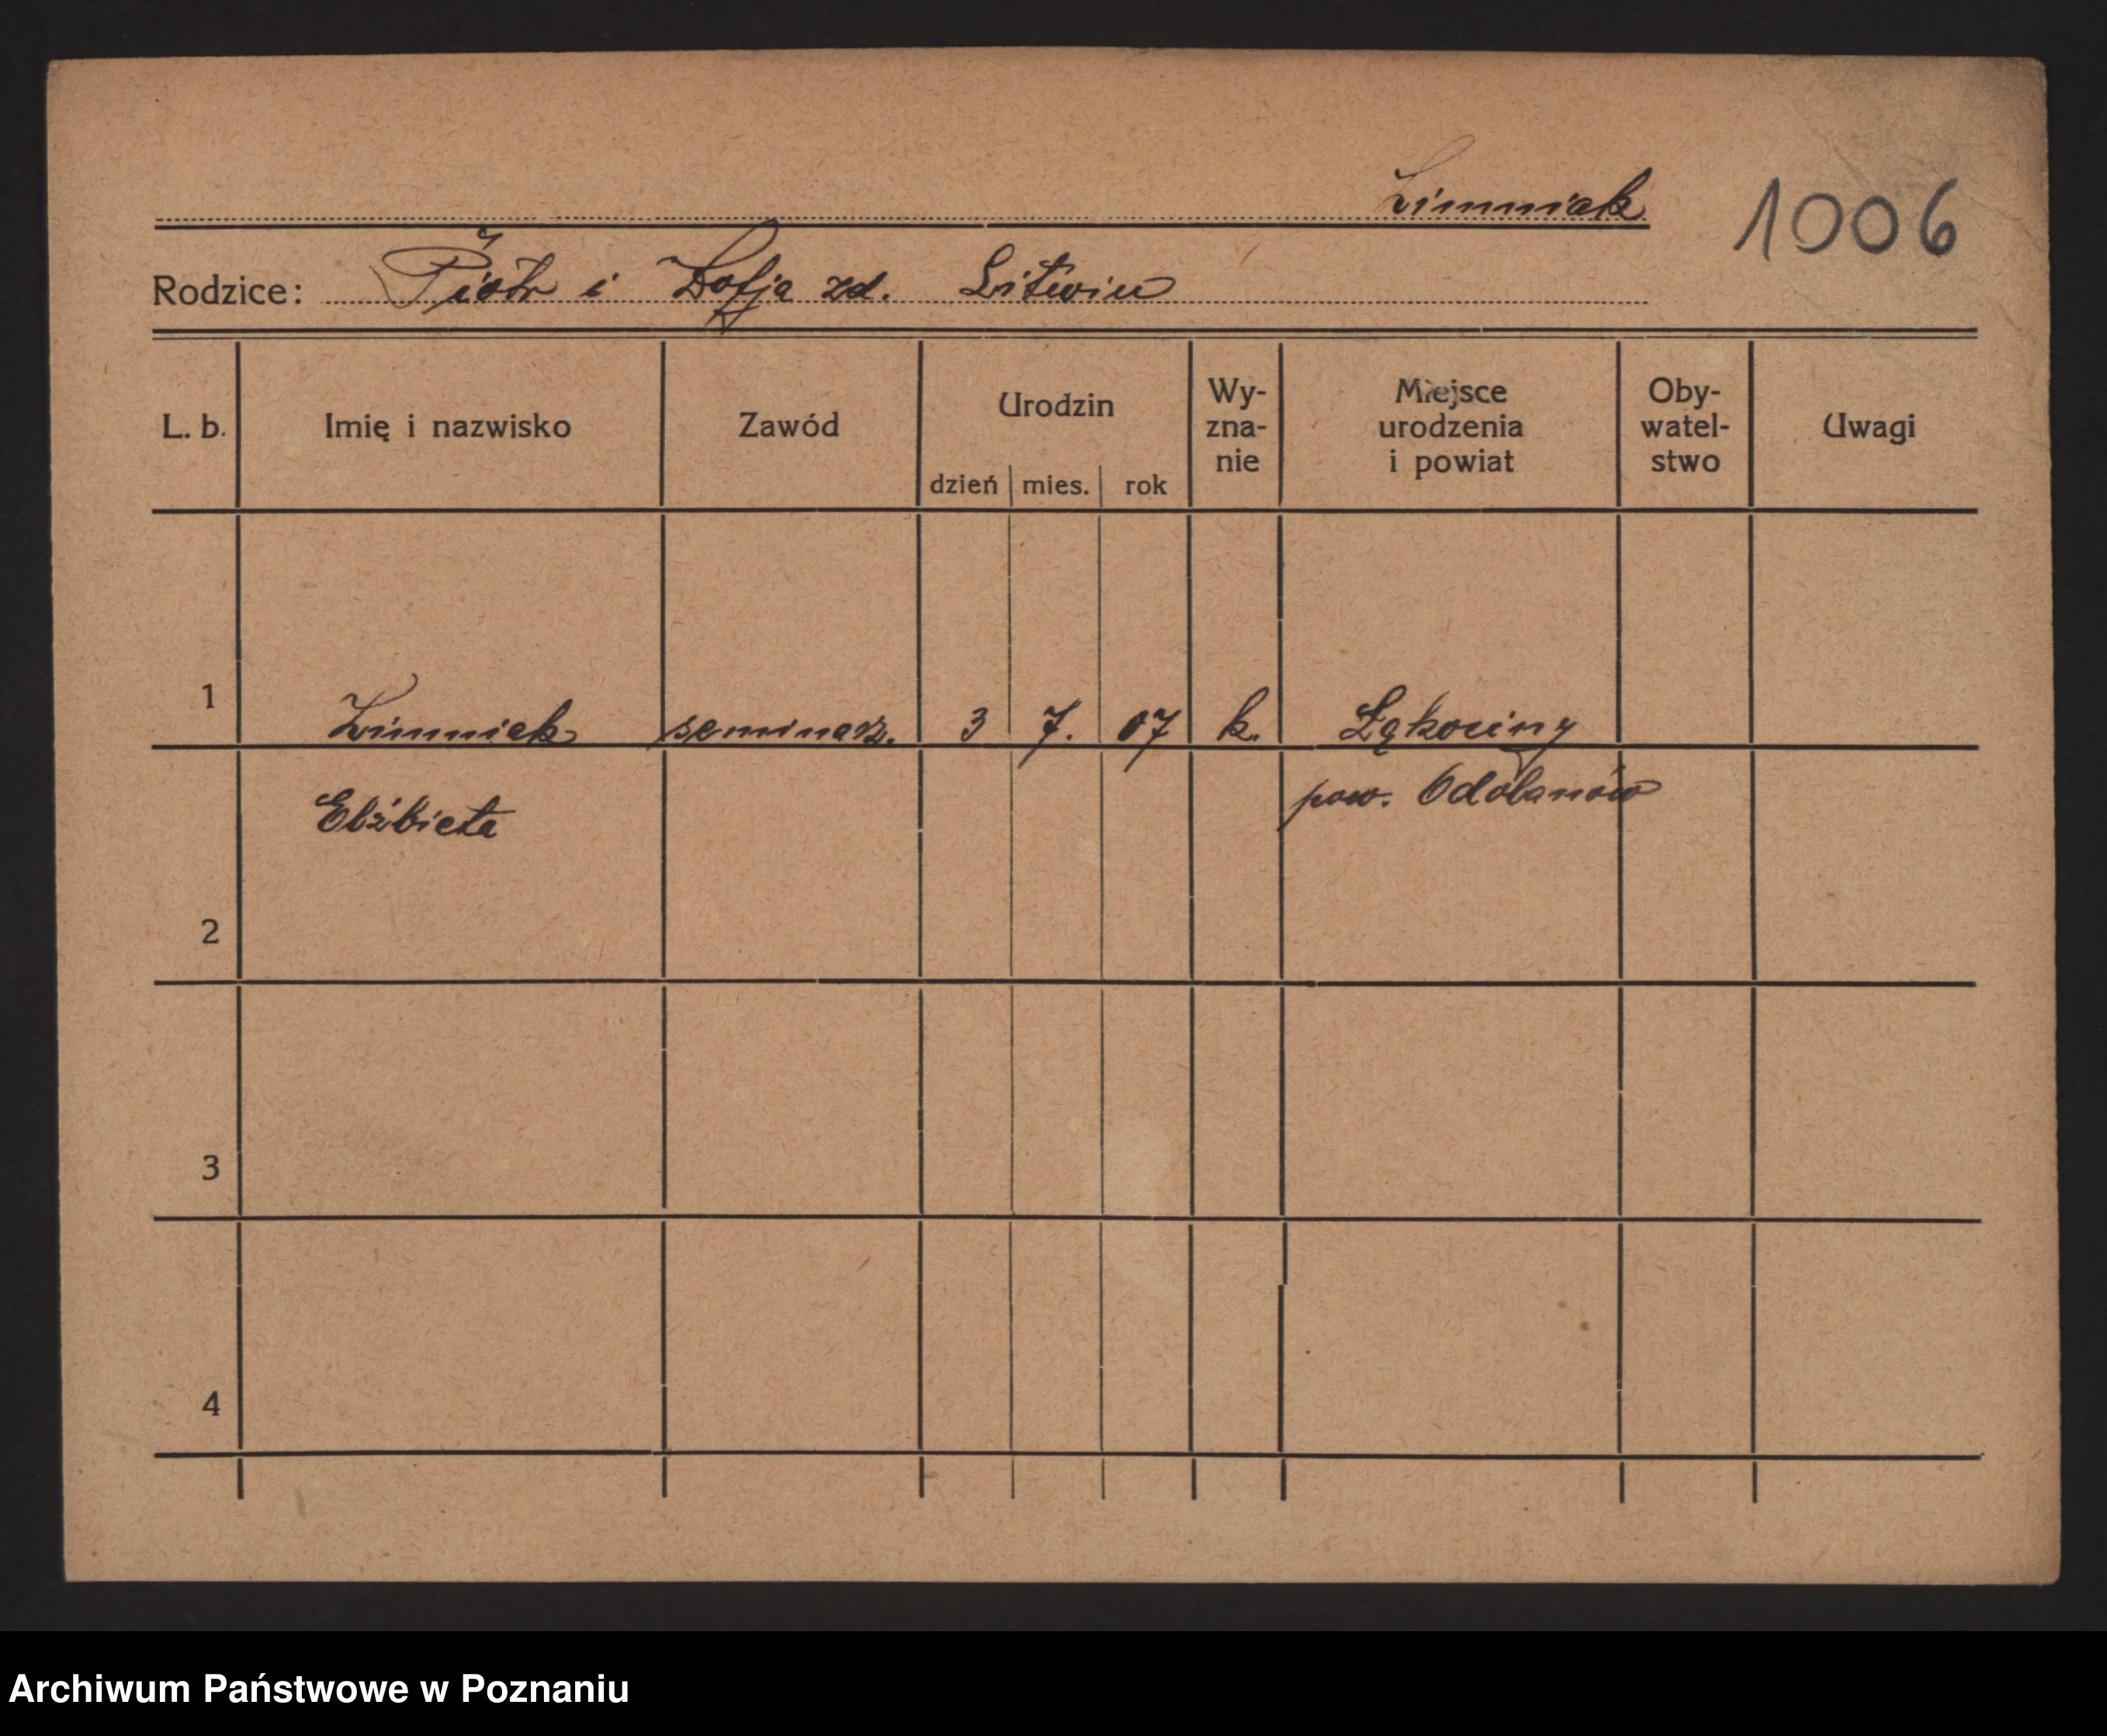 Zimniak 1006
Rodzice: Piotr i Zofja zd. Litwin
L. b. Imię i nazwisko Zawód Urodzin dzień mies. rok Wy-zna-nie Miejsce urodzenia i powiat Oby-watel-stwo Uwagi
1 Zimniak seminarz. 3 7. 07 k. Łąkociny
Elżbieta pow. Odolanów
2
3
4
Archiwum Państwowe w Poznaniu